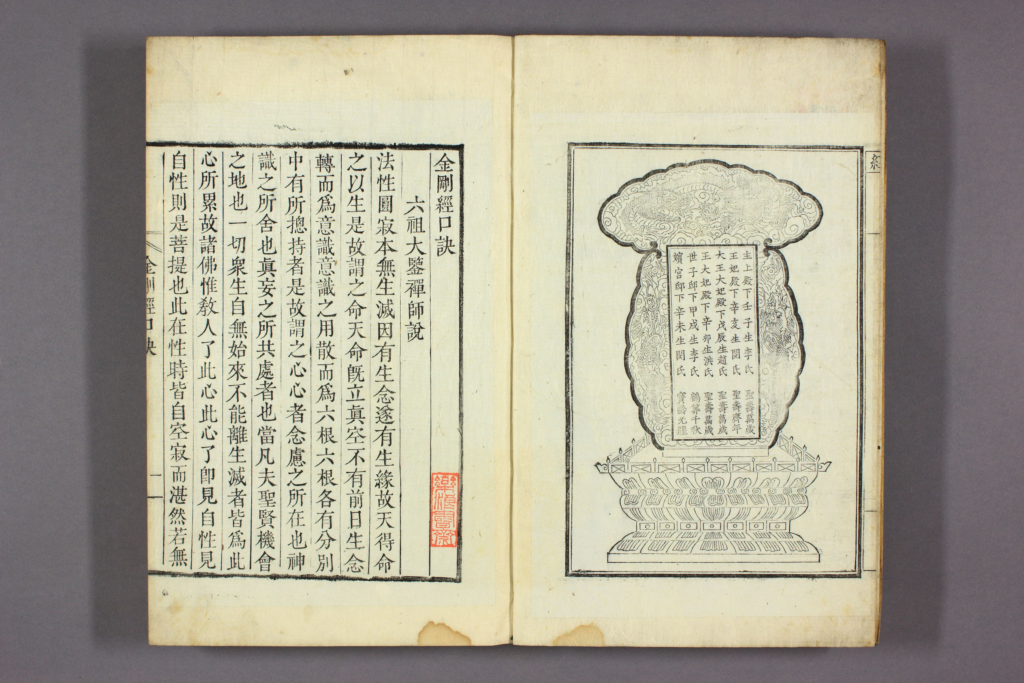 主上殿下壬子生李氏 聖壽萬歲
王妃殿下辛亥生閔氏 聖壽齊年
大王大妃殿下戊辰生趙氏 聖壽萬歲
王大妃殿下辛卯生洪氏 聖壽萬歲
世子邸下甲戌生李氏 鶴筭千秋
嬪宮邸下辛未生閔氏
金剛經口訣
六祖大鑒禪師說
法性圓寂本無生滅因有生念遂有生緣故天得命
之以生是故謂之命天命旣立眞空不有前日生念
轉而爲意識意識之用散而爲六根六根各有分別
中有所摠持者是故謂之心心者念慮之所在也神
識之所舍也眞妄之所共處者也當凡夫聖賢機會
之地也一切衆生自無始來不能離生滅者皆爲此
心所累故諸佛惟敎人了此心此心了卽見自性見
自性則是菩提也此在性時皆自空寂而湛然若無
金剛經口訣